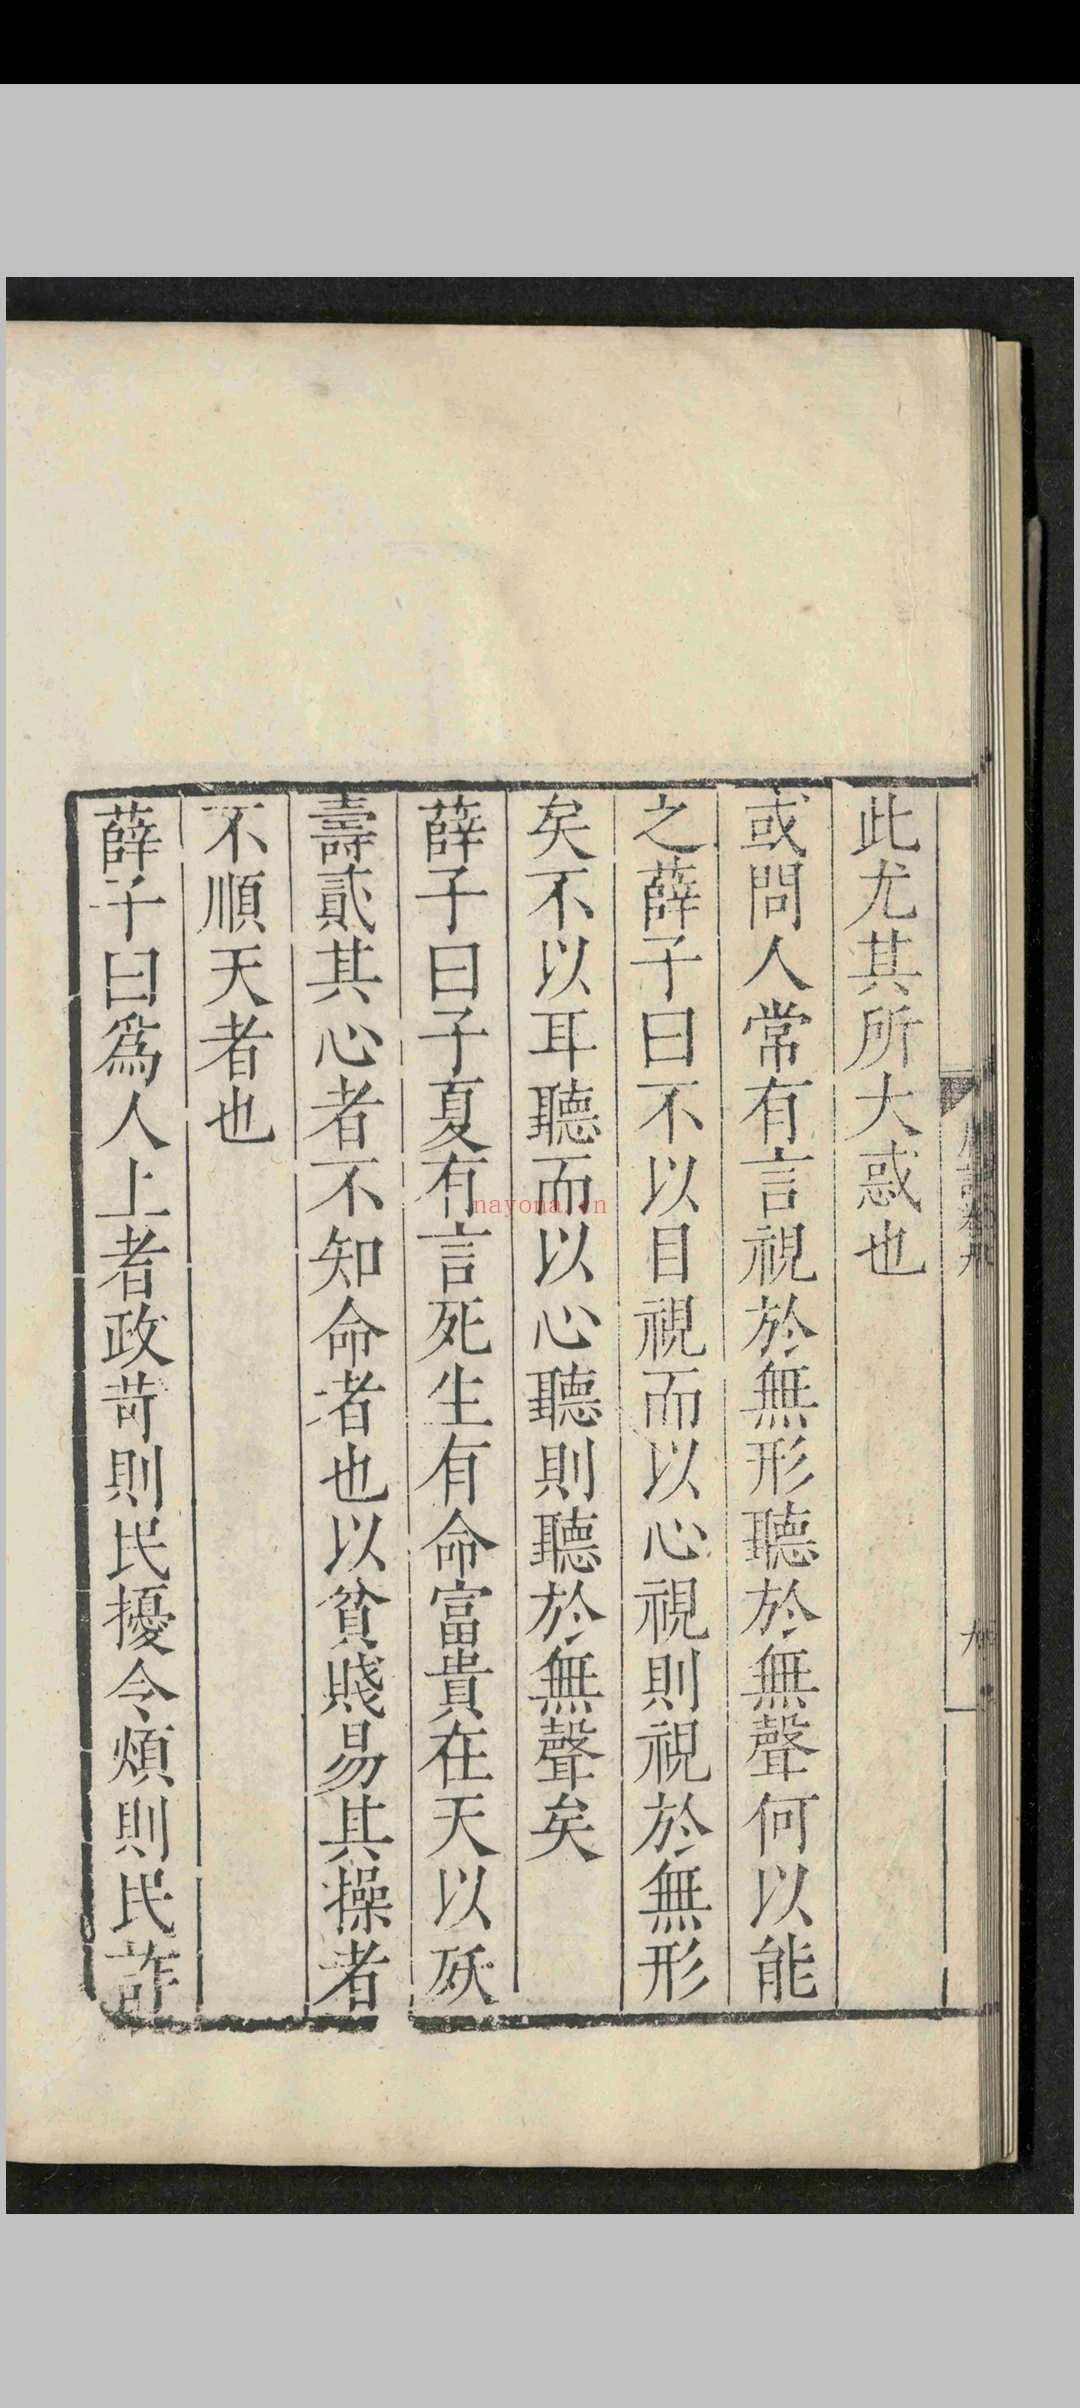 此尤其所大惑也
或問人常有言視於無形聽於無聲何以能
之薛子曰不以目視而以心視則視於無形
矣不以耳聽而以心聽則聽於無聲矣
薛子曰子夏有言死生有命富貴在天以殀
壽貳其心者不知命者也以貧賤易其操者
不順天者也
薛子曰爲人上者政苛則民擾令煩則民詐
nayona.cn